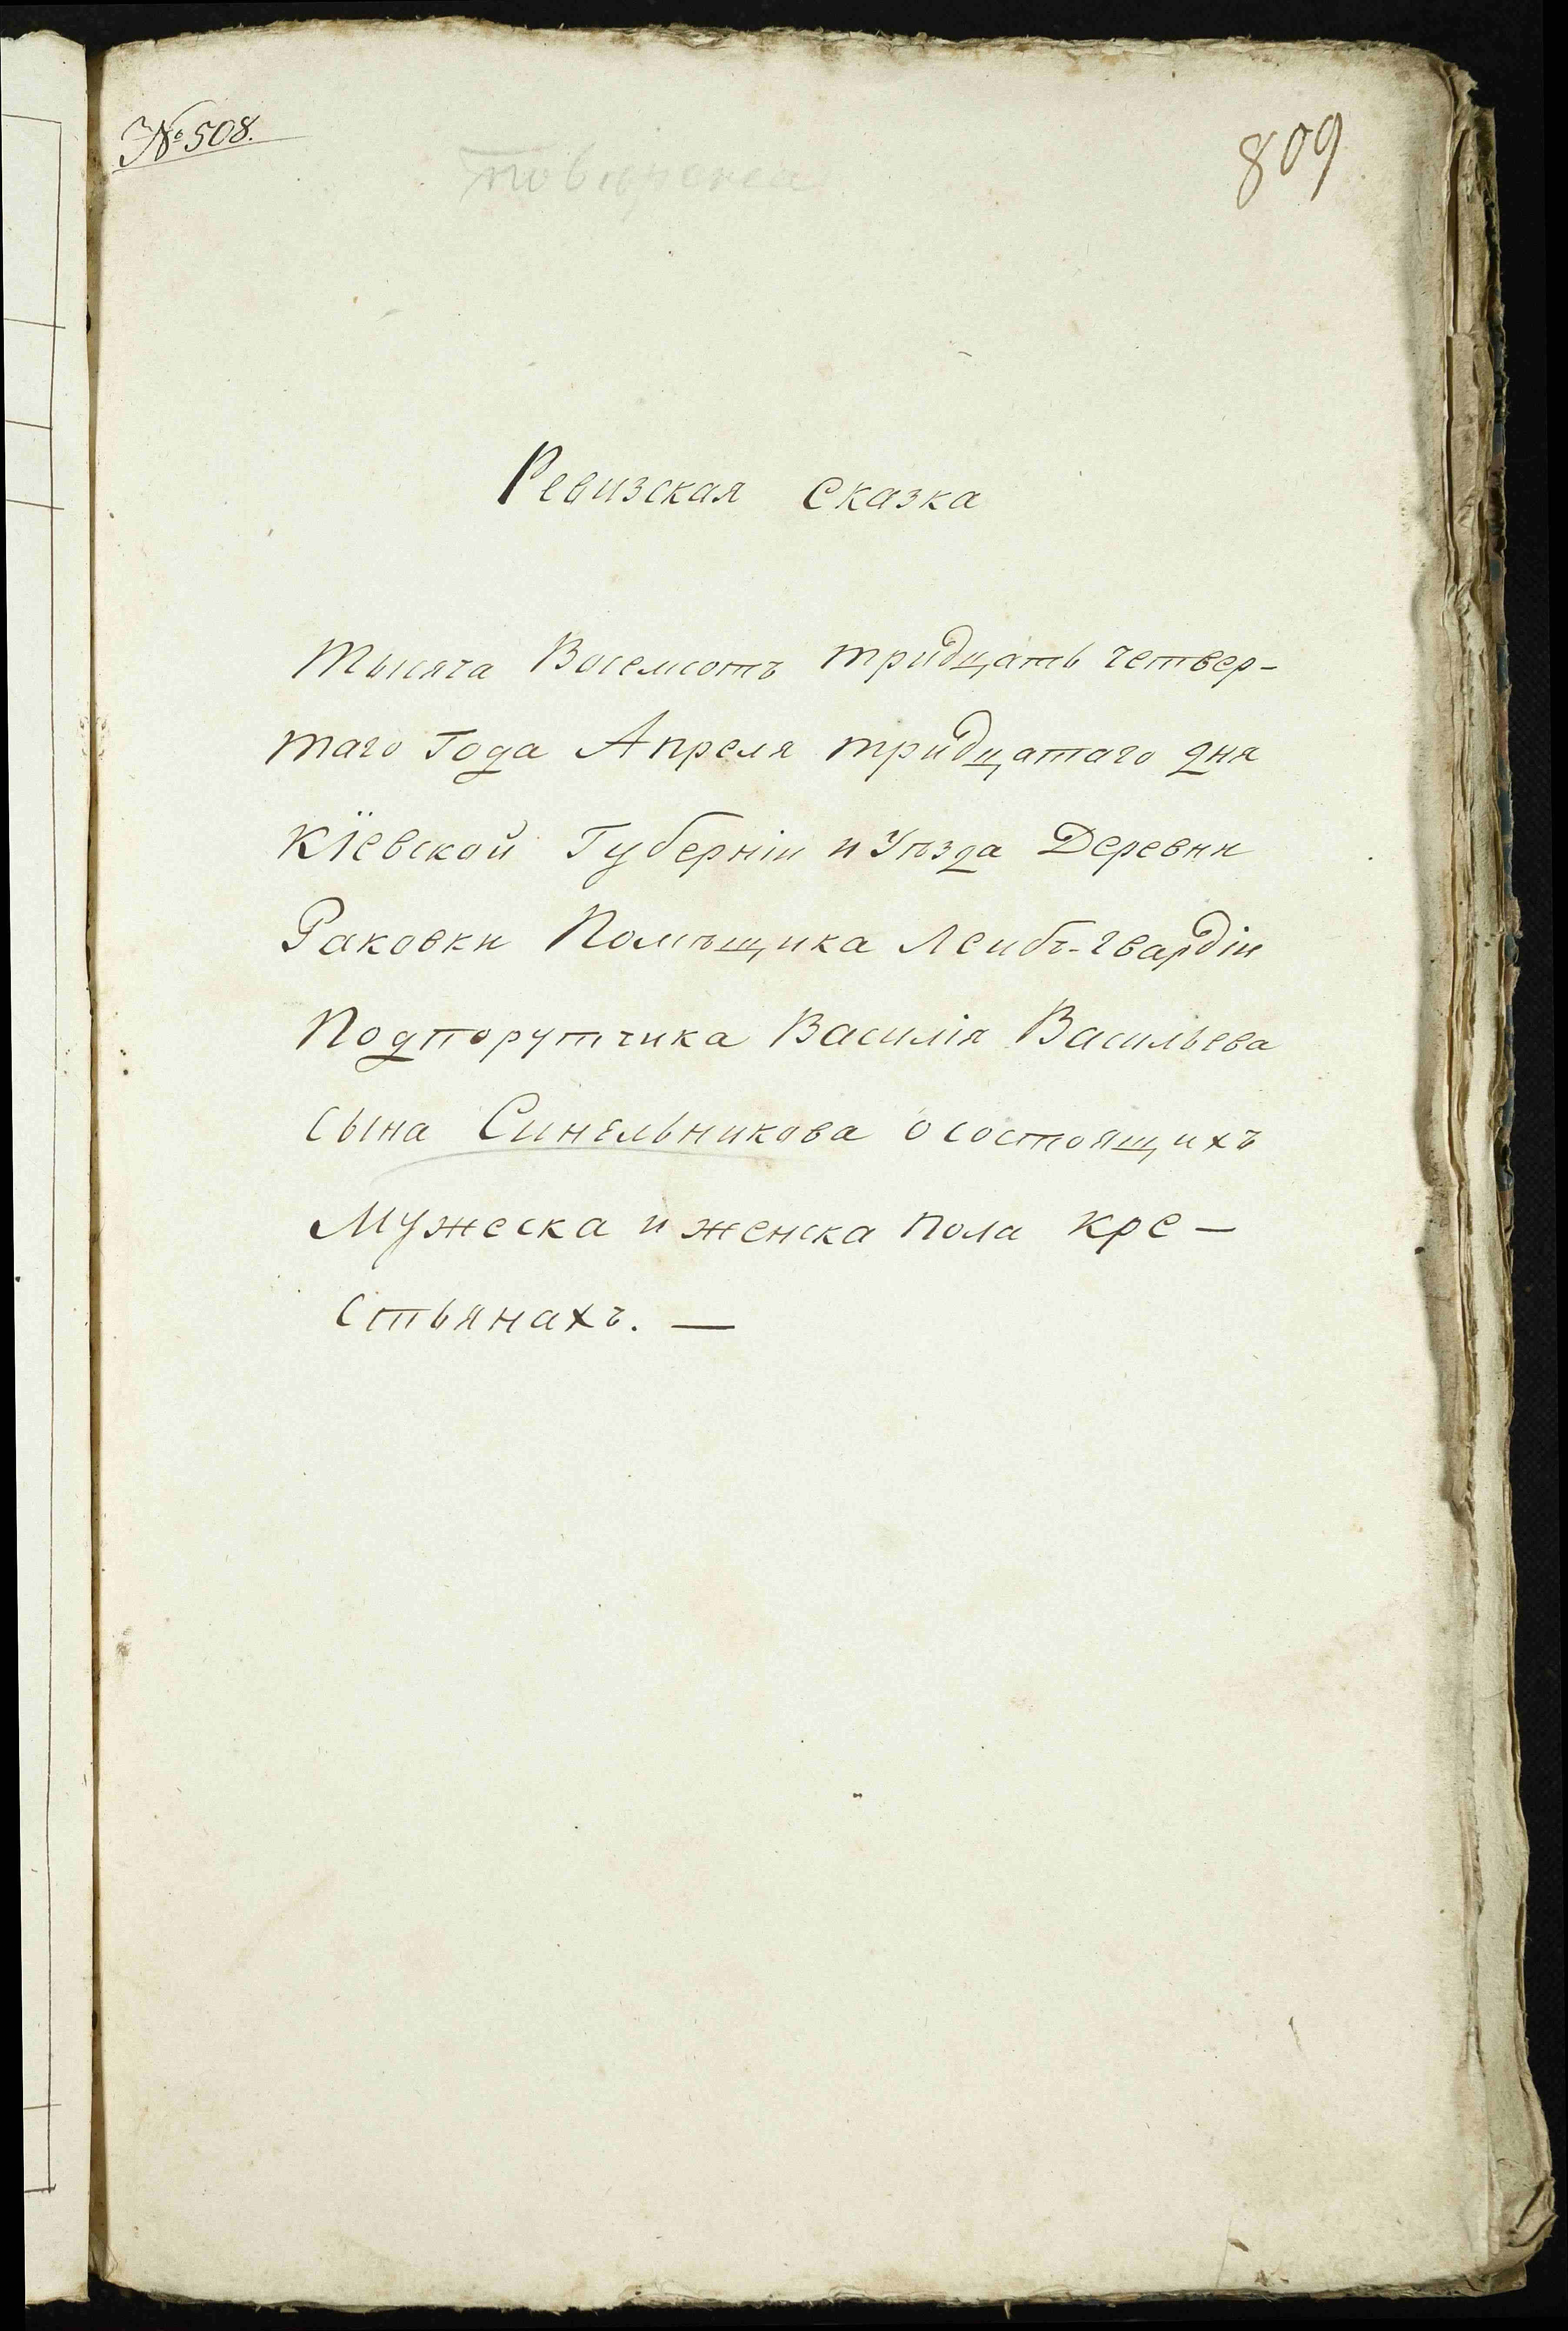 № 508.
809
Ревизская сказка
Тысяча Восемсотъ тридцать четвер-
таго Года Апреля тридцатаго дня
Кіевской Губерніи и Уѣзда Деревни
Раковки Помѣщика Леибъ-гвардіи
Подпорутчика Василія Васильева
сына Синельникова о состоящихъ
Мужеска и женска пола кре-
стьянахъ. —